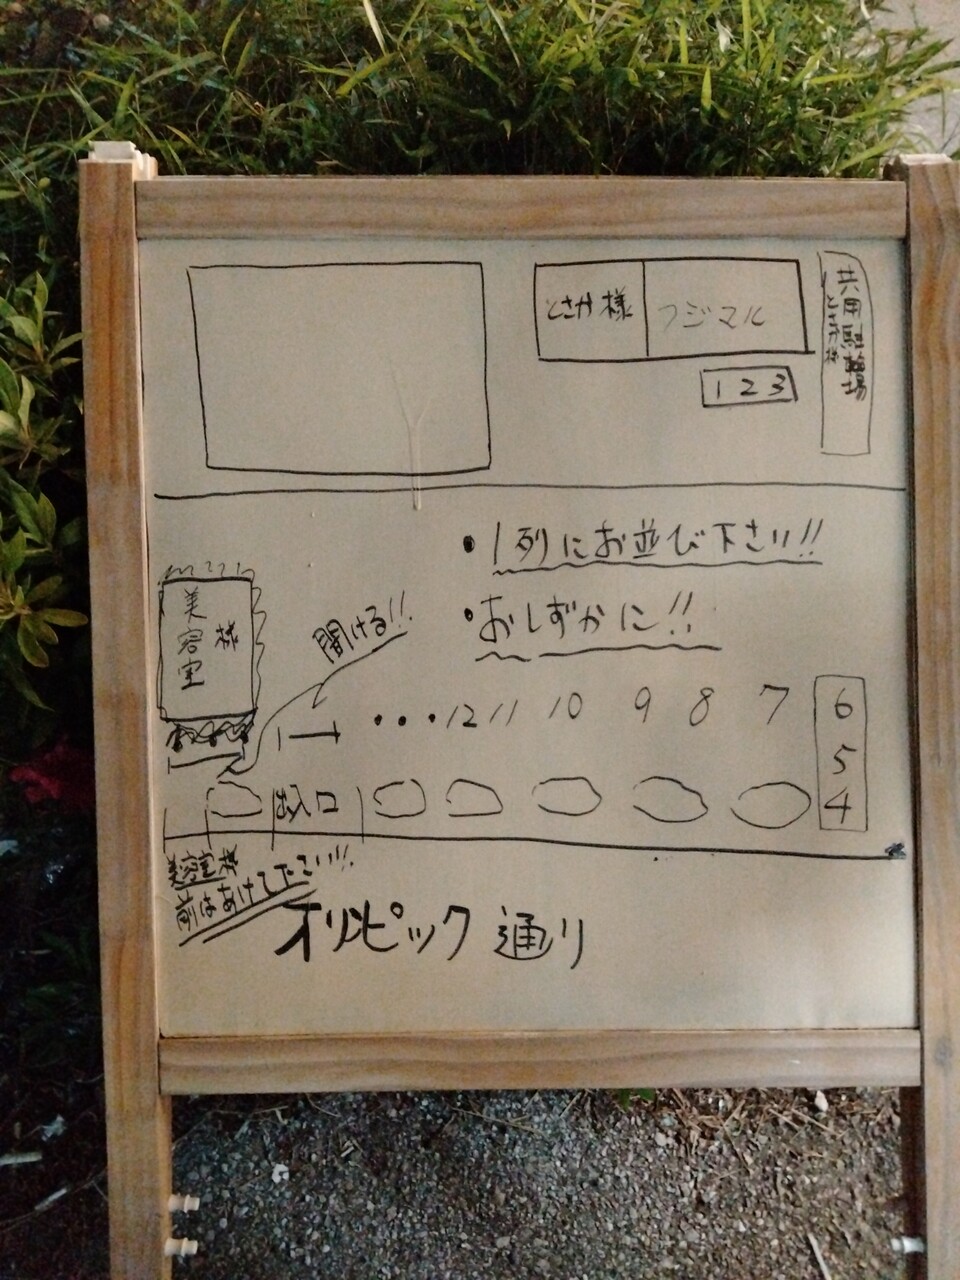 とさか様
フジマル
共用駐輪場
とさか様
1 2 3
・1列にお並び下さい!!
・おしずかに!!
美容室様
開ける!!
・・・12 11 10 9 8 7 6
5
4
出入口
美容室様
前はあけて下さい!!!
オリンピック通り